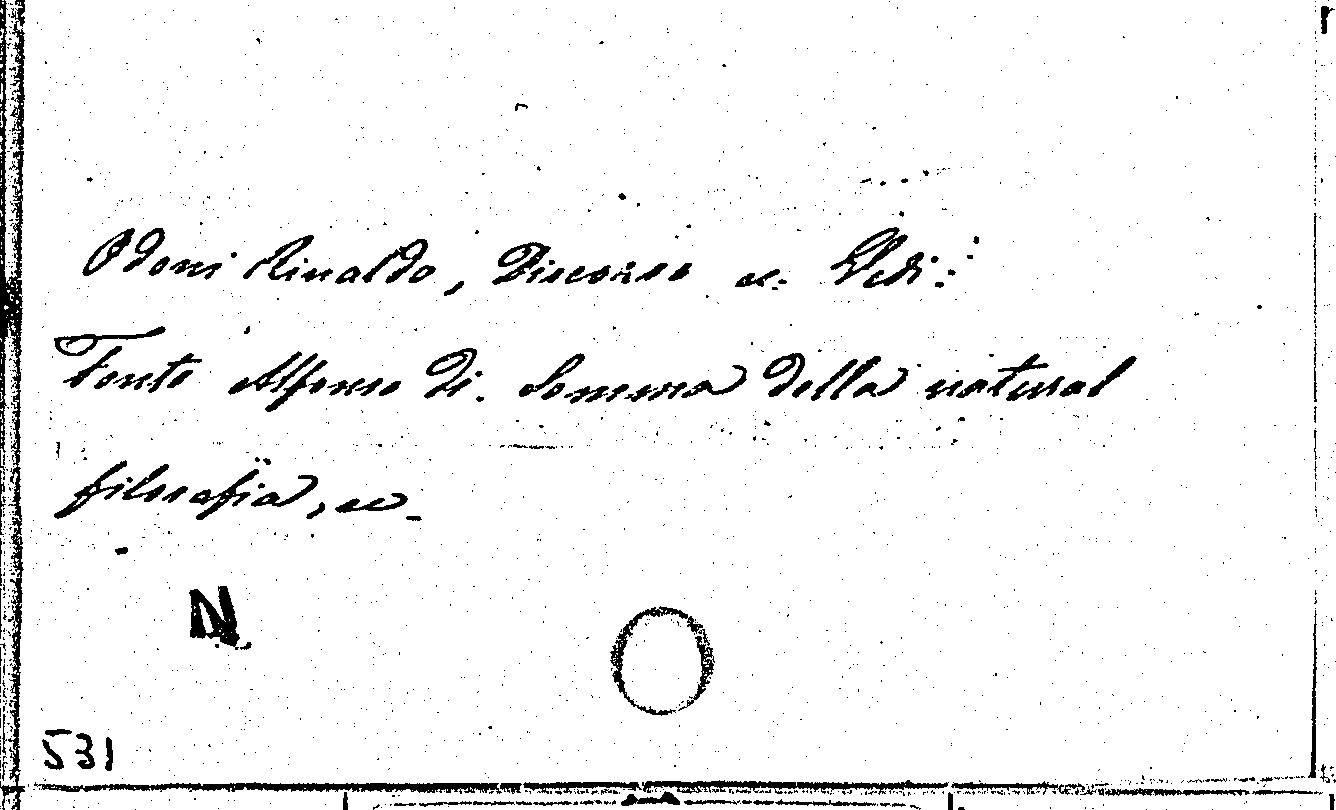 Odoni Rinaldo, Discorso ec. Vedi:
Fonte Alfonso di. Somma della natural
filosofia, ec.
N
531